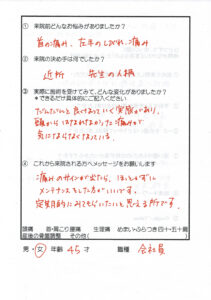 ① 来院前どんなお悩みがありましたか?
首の痛み、左手のしびれ、痛み
② 来院の決め手は何でしたか?
近所 先生の人柄
③ 実際に施術を受けてみて、どんな変化がありましたか?
*できるだけ具体的にご記入ください
だんだんと良くなっていく実感があり、
なかった痛みが
気にならなくなっている
④ これから来院される方へメッセージをお願いします
痛みのサインが出たら、ほっとかずに
メンテナンスをした方がいいです。
定期的にみてもらいたいと思える所です。
頭痛 首・肩こり 腰痛 生理痛 めまい・ふらつき 四十・五十肩
産後の骨盤調整 その他( )
男・女 年齢 45 才 職種 会社員